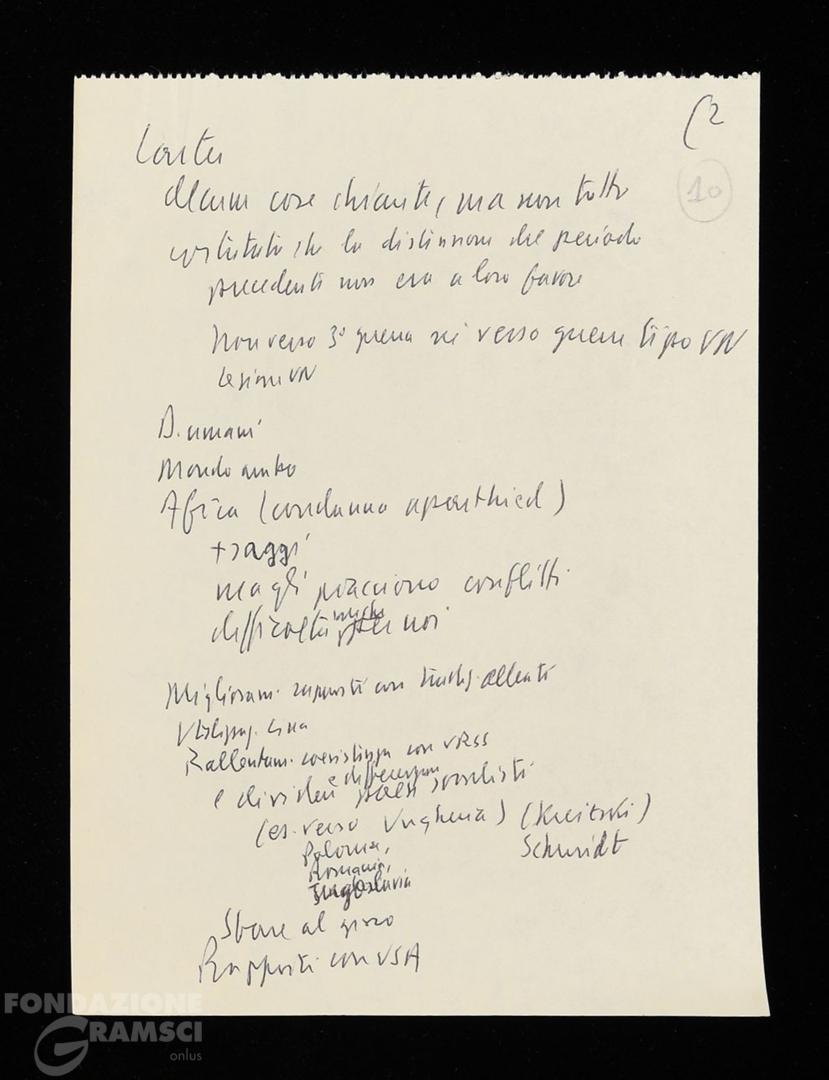 (2
10
Carter
Alcune cose chiarite, ma non tutto
constatato che la distensione del periodo
precedente non era a loro favore
Non verso 3° guerra né verso guerre tipo VN
Lezione VN
D. umani
Mondo arabo
Africa (condanna apartheid)
+ saggi
ma gli piacciono conflitti
difficoltà anche per noi
Miglioram. rapporti con tradiz. alleati
Cina
Rallentam. coesistenza con URSS
e dividere e differenziare paesi socialisti
(es. verso Ungheria) (Kreitski)
Polonia, Schmidt
Romania,
Iugoslavia
Stare al gioco
Rapporti con USA
FONDAZIONE
GRAMSCI
onlus